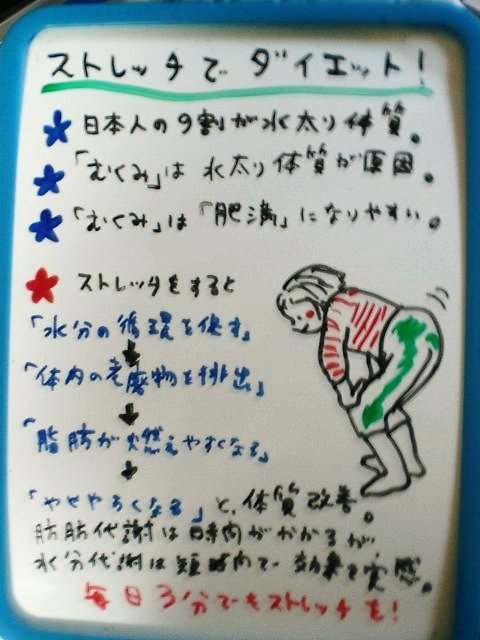 ストレッチでダイエット!
日本人の9割が水太り体質。
「むくみ」は水太り体質が原因。
「むくみ」は「肥満」になりやすい。
ストレッチをすると
「水分の循環を促す」
「体内の老廃物を排出」
「脂肪が燃えやすくなる」
「やせやすくなる」と、体質改善。
肪肪代謝は時間がかかるが
水分代謝は短時間で効果を実感。
毎日3分でもストレッチを!